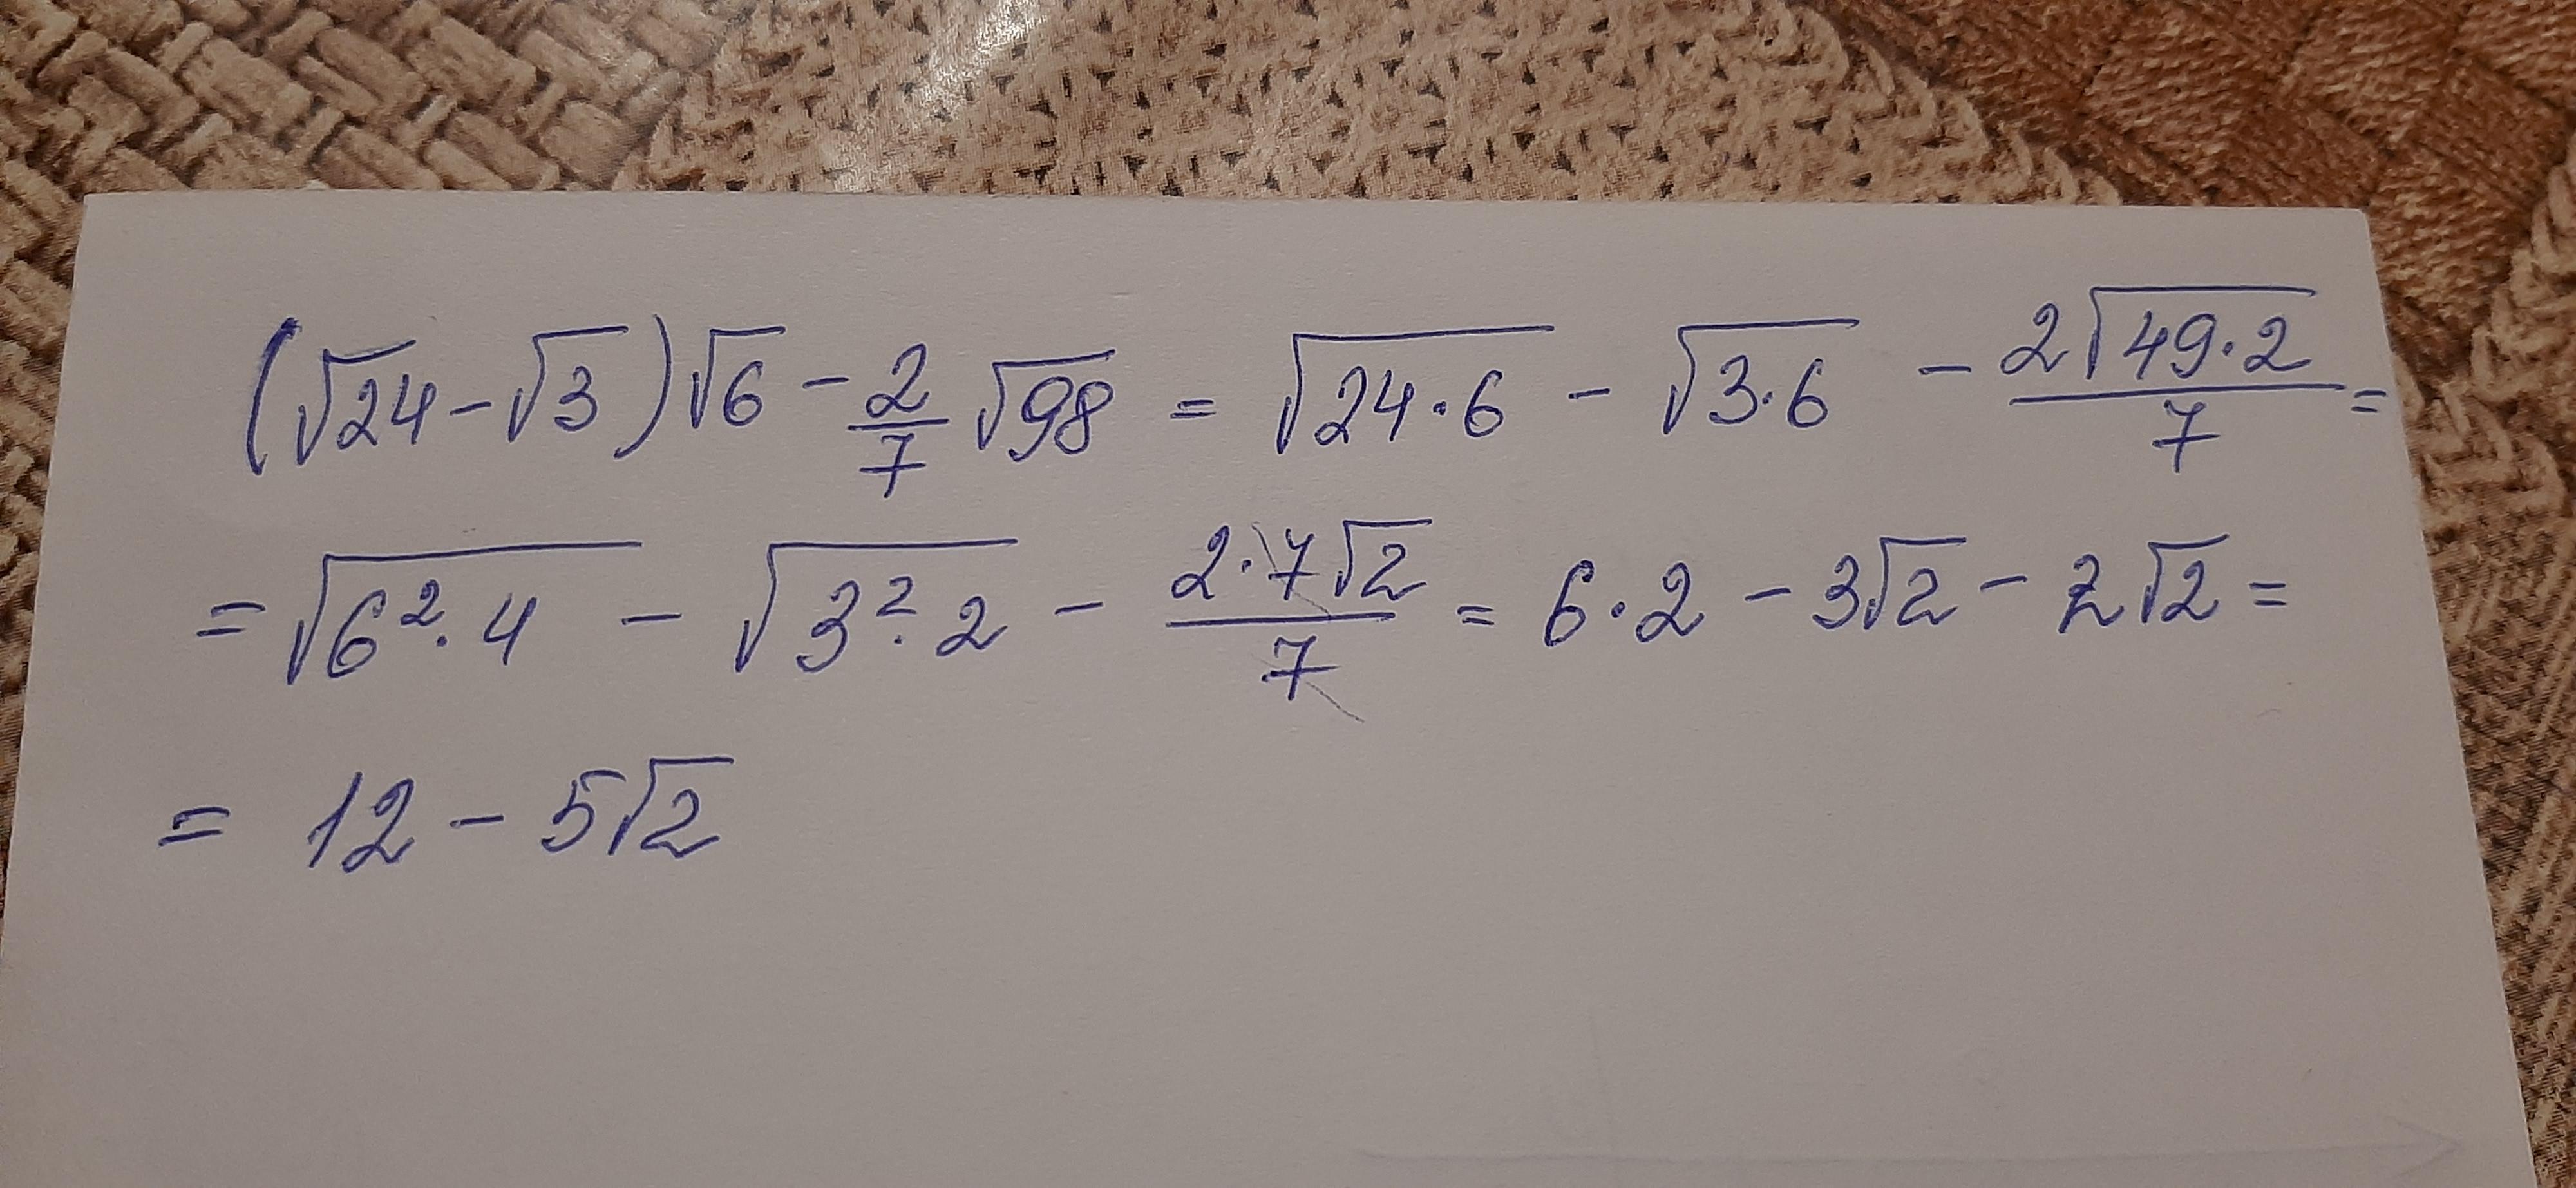 (√24 - √3)√6 - 2/7 √98 = √(24·6) - √(3·6) - 2√(49·2)/7 =
= √(6²·4) - √(3²·2) - 2·7√2/7 = 6·2 - 3√2 - 2√2 =
= 12 - 5√2